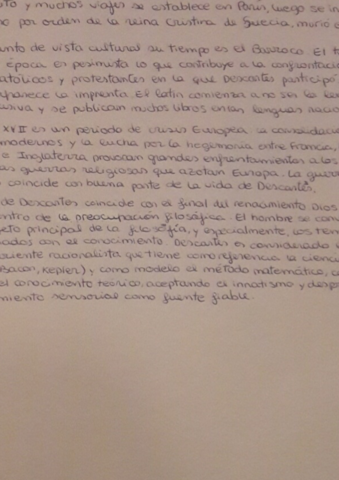 y muchos viajes se establece en París, luego se in
por orden de la reina Cristina de Suecia, murió e
unto de vista cultural su tiempo es el Barroco. El t
época es pesimista lo que contribuye a la confrontació
católicos y protestantes en la que Descartes participó
aparece la imprenta. El latín comienza a no ser la le
y se publican muchos libros en las lenguas nacio
XVII es un período de crisis Europea la consolidació
modernos y la lucha por la hegemonía entre Francia,
e Inglaterra provocan grandes enfrentamientos a los
as guerras religiosas que azotan Europa. La guerr
coincide con buena parte de la vida de Descartes,
de Descartes coincide con el final del renacimiento Dios
ntro de la preocupación filosófica. El hombre se con
eto principal de la filosofía, y especialmente, los tem
ados con el conocimiento. Descartes es considerado
corriente racionalista que tiene como referencia la cienc
Bacon, Kepler) y como modelo el método matemático, c
el conocimiento teórico, aceptando el innatismo y desp
miento sensorial como fuente fiable.